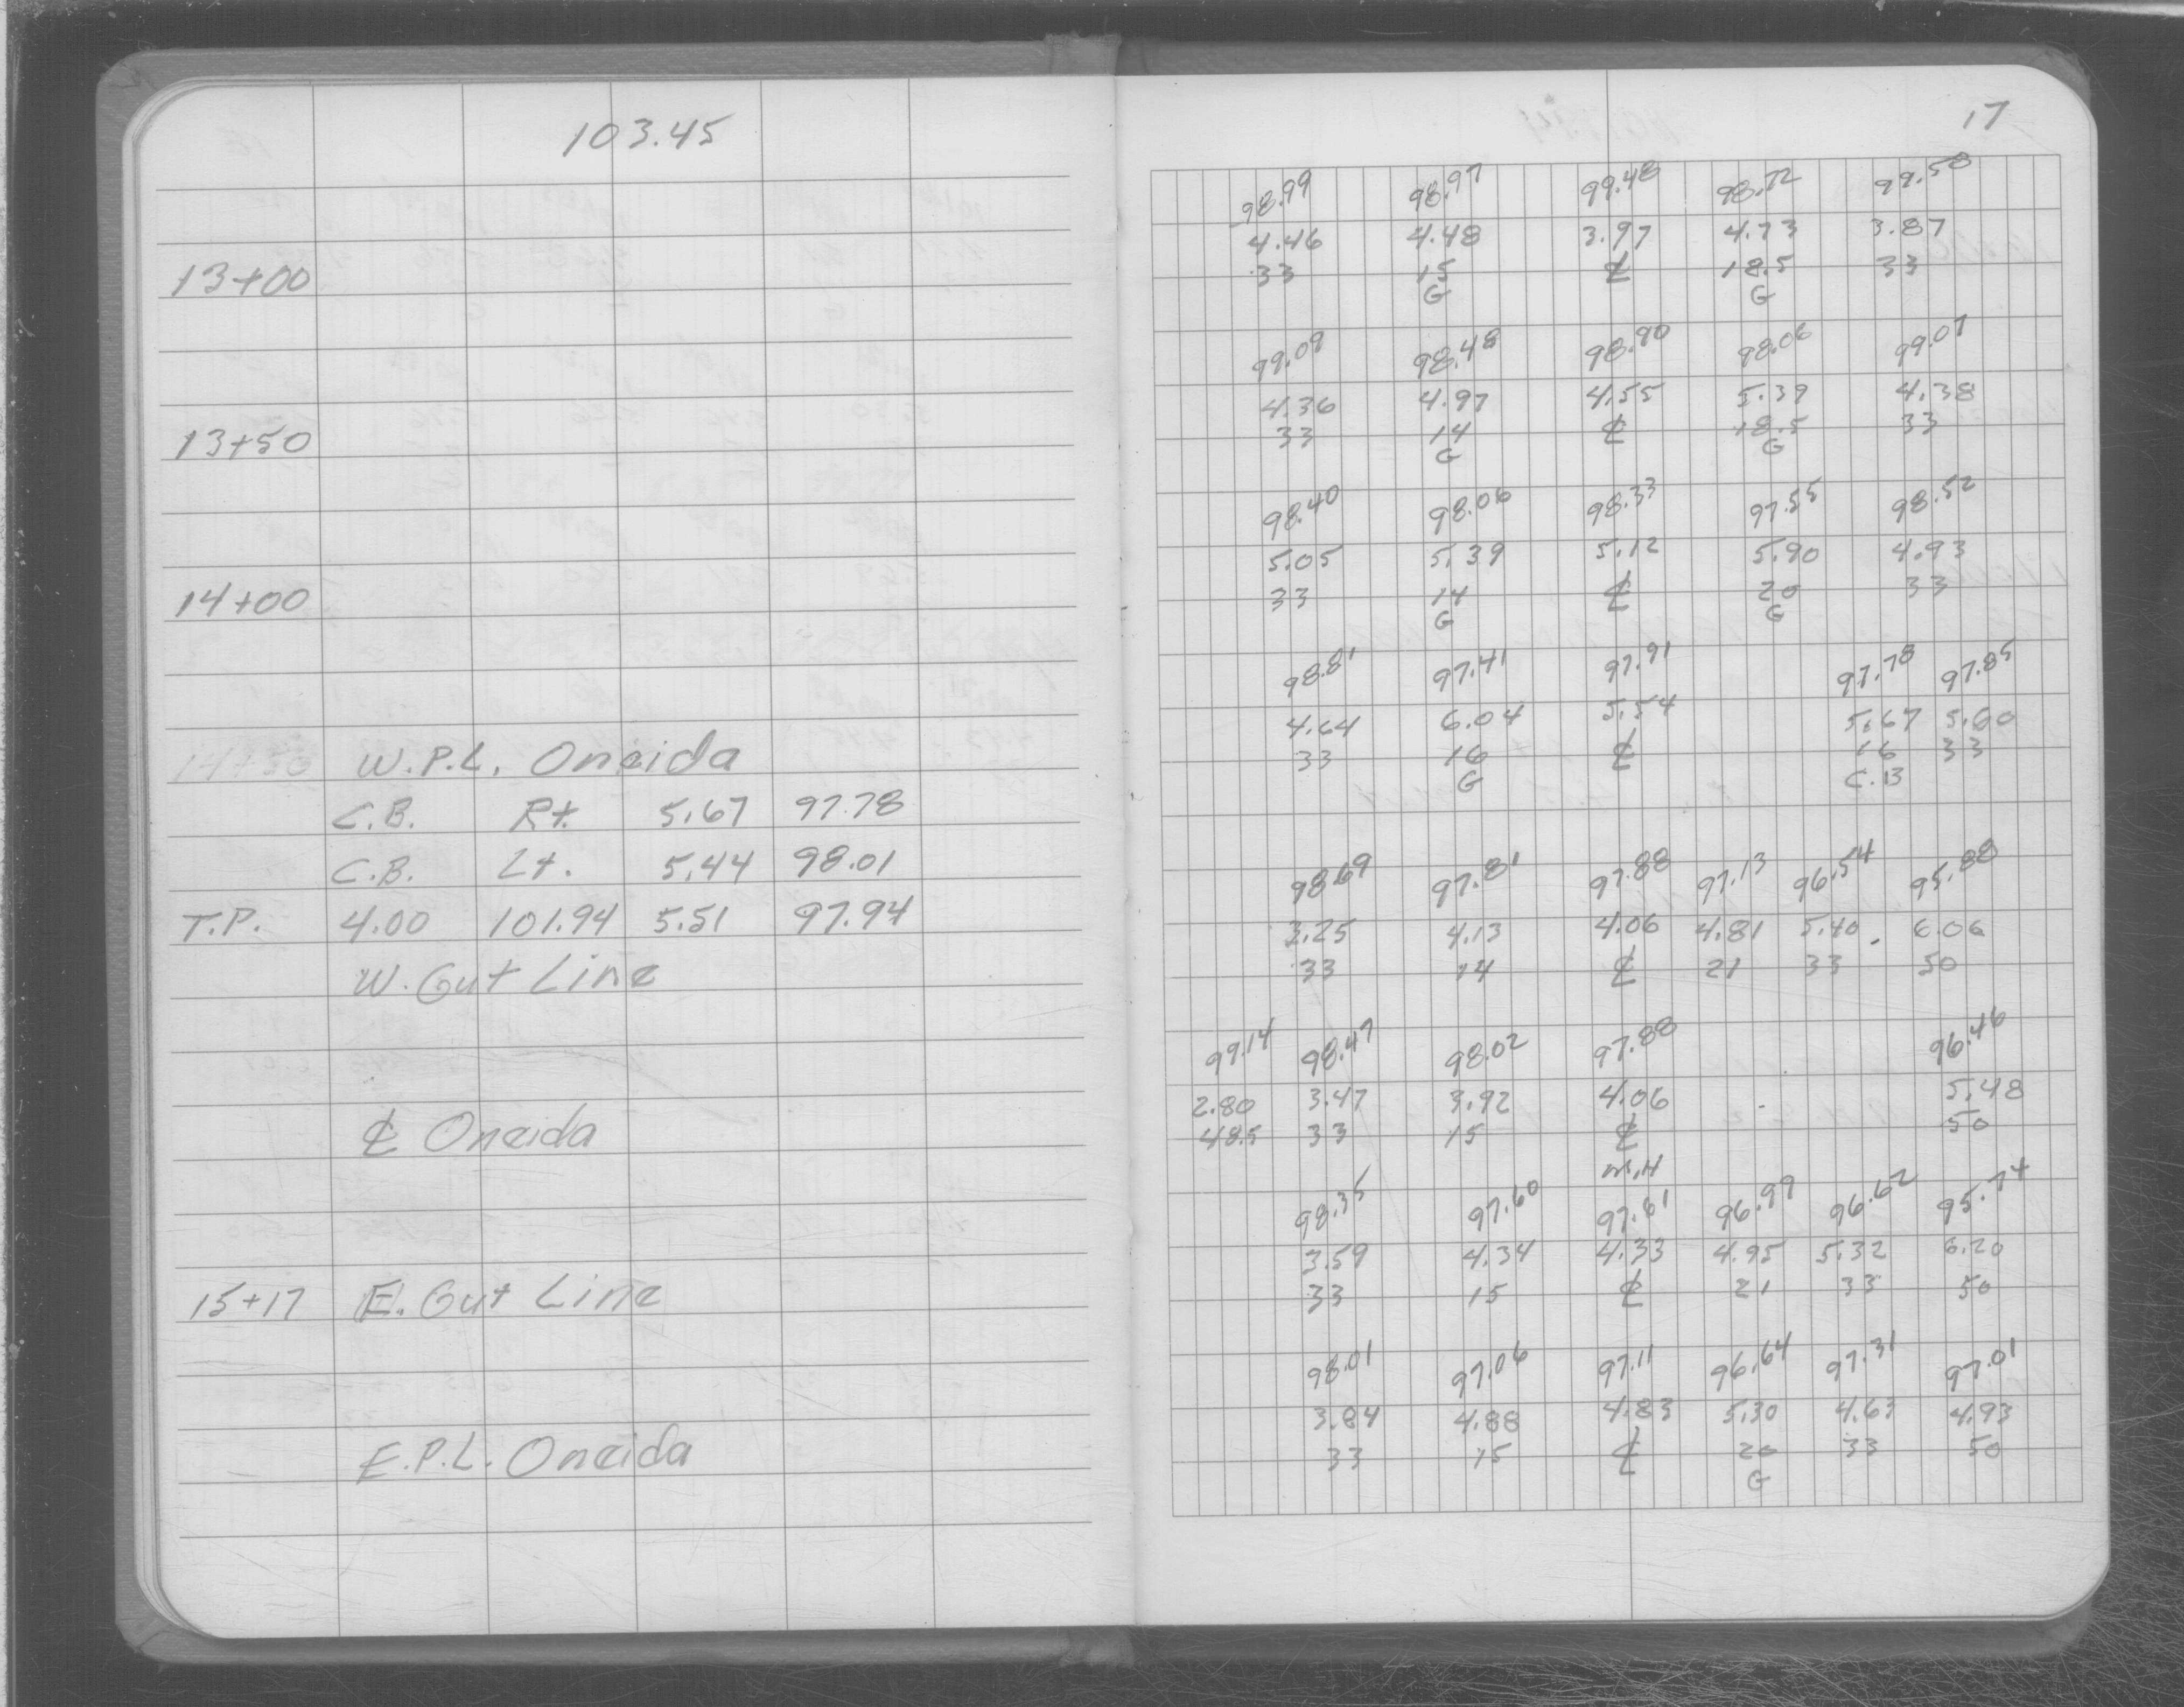 103.45
13+00
13+50
14+00
14+50 W.P.L. Oneida
C.B. Rt. 5.67 97.78
C.B. Lt. 5.44 98.01
T.P. 4.00 101.94 5.51 97.94
W. Gut Line
℄ Oneida
15+17 E. Gut Line
E.P.L. Oneida
17
98.99 98.97 99.48 98.72 99.58
4.46 4.48 3.97 4.73 3.87
33 15 ℄ 18.5 33
G G
99.09 98.48 98.90 98.06 99.07
4.36 4.97 4.55 5.39 4.38
33 14 ℄ 18.5 33
G G
98.40 98.06 98.33 97.55 98.52
5.05 5.39 5.12 5.90 4.93
33 14 ℄ 20 33
G G
98.81 97.41 97.91 97.78 97.85
4.64 6.04 5.54 5.67 5.60
33 16 ℄ 16 33
G C.B
98.69 97.81 97.88 97.13 96.54 95.88
3.25 4.13 4.06 4.81 5.40 6.06
33 14 ℄ 21 33 50
99.14 98.47 98.02 97.88 96.46
2.80 3.47 3.92 4.06 5.48
48.5 33 15 ℄ 50
M.H
98.35 97.60 97.61 96.99 96.62 95.74
3.59 4.34 4.33 4.95 5.32 6.20
33 15 ℄ 21 33 50
98.01 97.06 97.11 96.64 97.31 97.01
3.84 4.88 4.83 5.30 4.63 4.93
33 15 ℄ 20 33 50
G